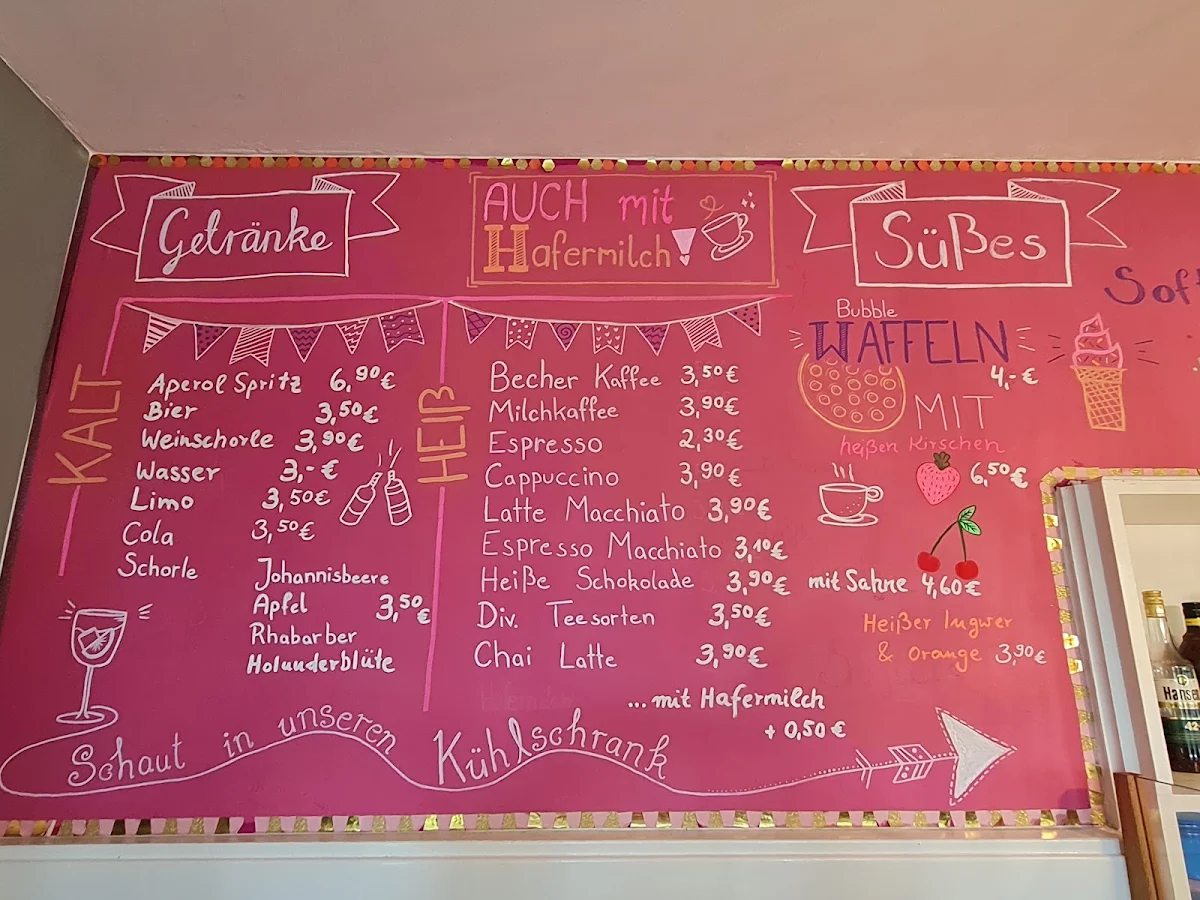 Getränke
KALT
Aperol Spritz 6,90€
Bier 3,50€
Weinschorle 3,90€
Wasser 3,-€
Limo 3,50€
Cola 3,50€
Schorle
Johannisbeere
Apfel 3,50€
Rhabarber
Holunderblüte
AUCH mit
Hafermilch!
HEIß
Becher Kaffee 3,50€
Milchkaffee 3,90€
Espresso 2,30€
Cappuccino 3,90€
Latte Macchiato 3,90€
Espresso Macchiato 3,10€
Heiße Schokolade 3,90€ mit Sahne 4,60€
Div. Teesorten 3,50€
Chai Latte 3,90€
...mit Hafermilch
+ 0,50€
Süßes
Bubble
WAFFELN
4,-€
MIT
heißen Kirschen
6,50€
Heißer Ingwer
& Orange 3,90€
Soft
Schaut in unseren Kühlschrank
Hanse
42